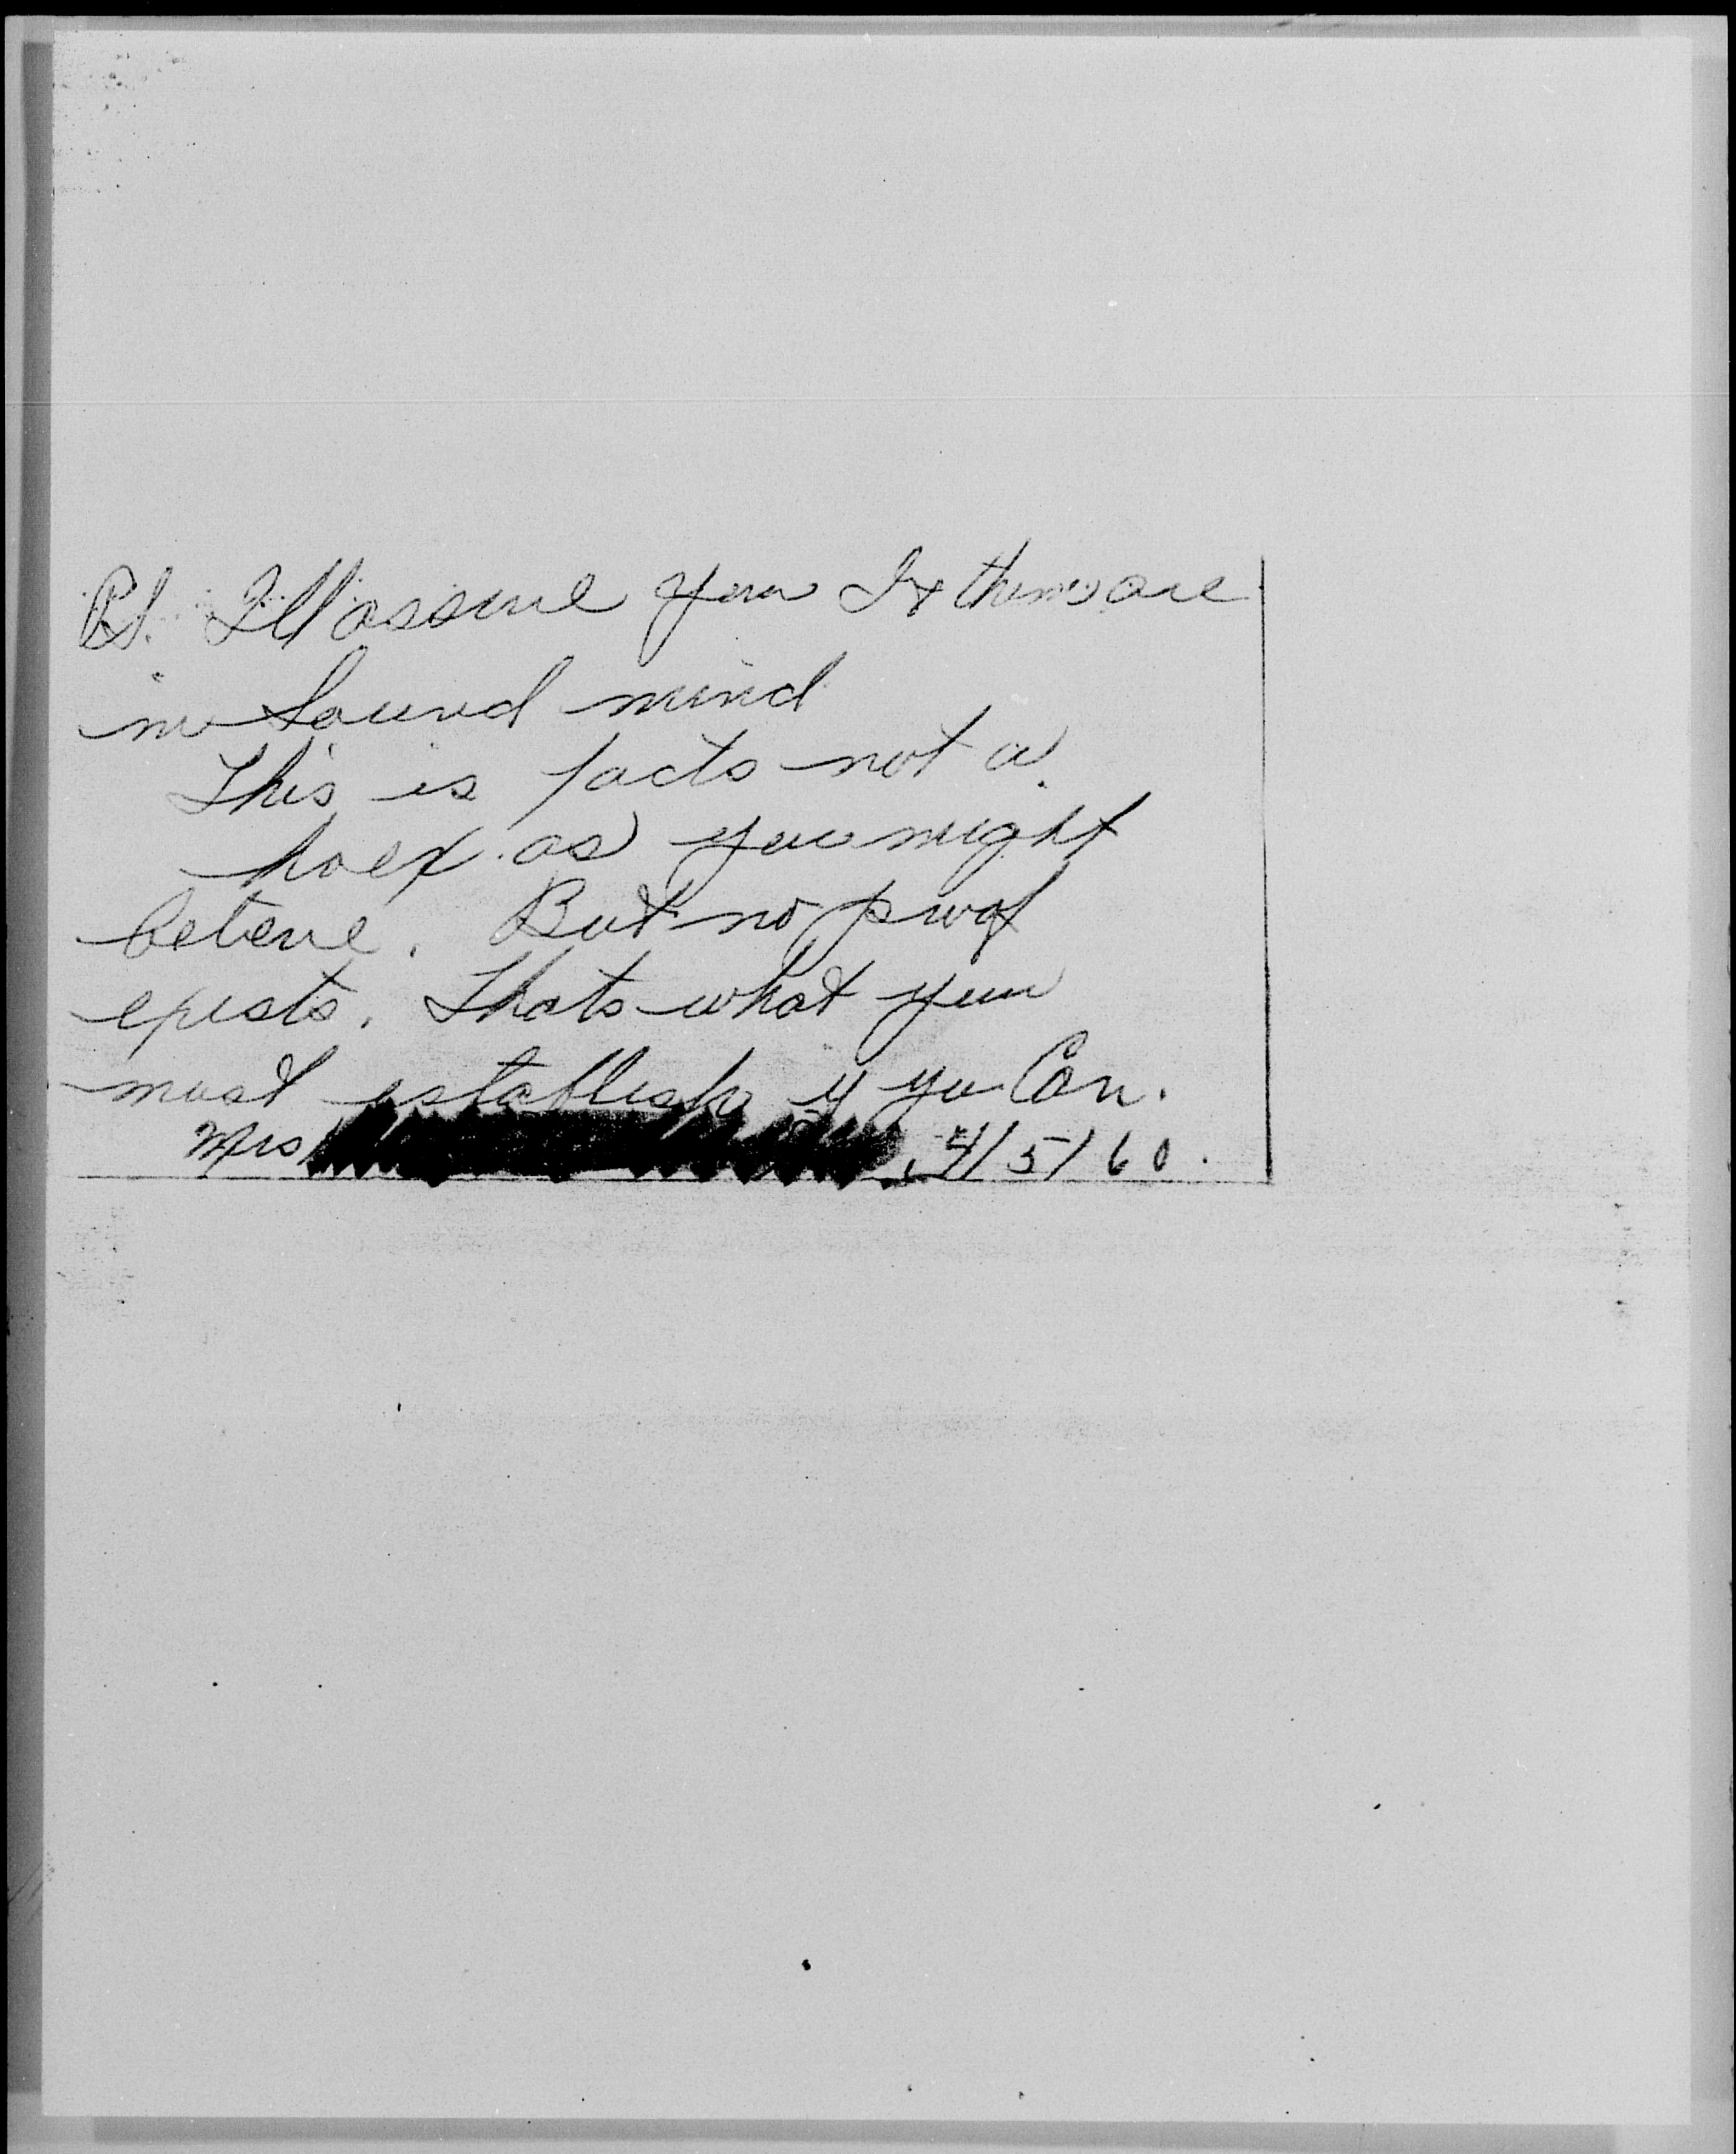 PS. I'll assure you I & them are
in Sound mind
This is facts not a
hoex as you might
beleive. But no proof
exists. Thats what you
must establish if you Can.
Mrs , 4/5/60.